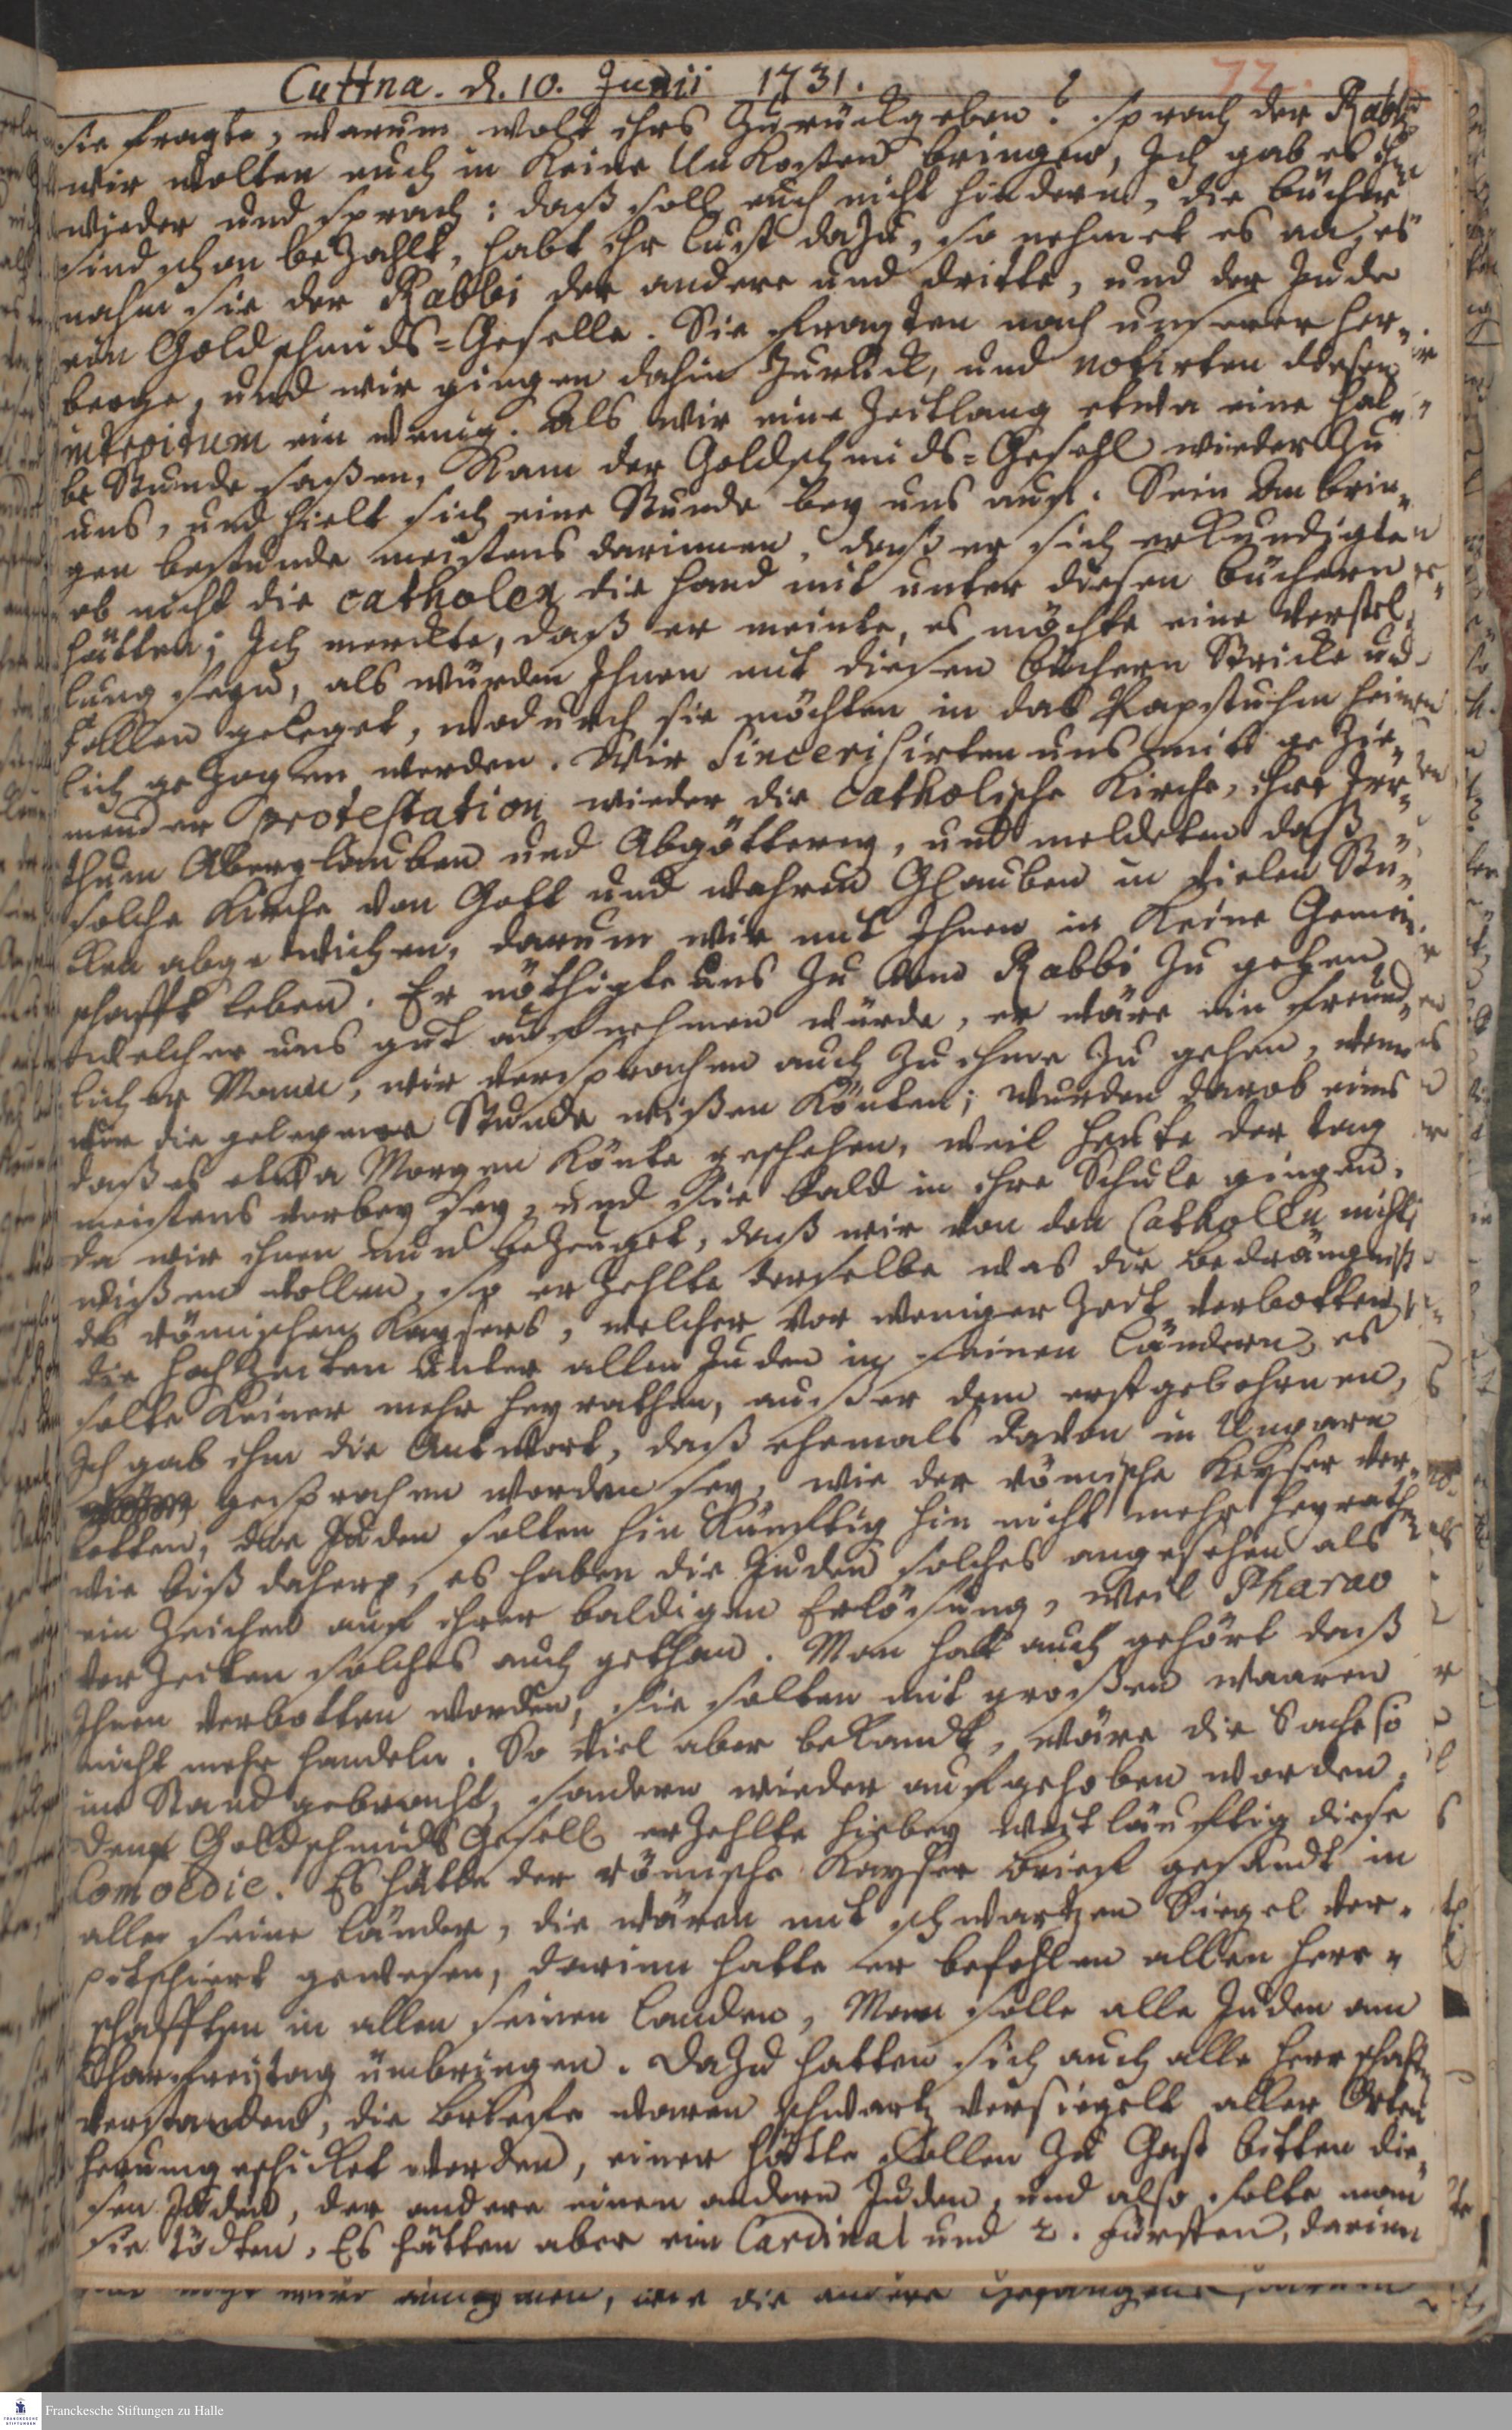 Cuttna. d. 10. Junii 1731.
72.
sie fragte, warum wolt ihrs zurückgeben? sprach der Rabbi
wir wolten euch in keine Unkosten bringen, Ich gab es ihm
wieder und sprach: daß soll euch nicht hindern, die bücher
sind schon bezahlt, habt ihr lust dazu, so nehmet es an, es
nahm sie der Rabbi der andere und dritte, und der Jude
ein Goldschmids-Geselle. Sie fragten nach unserer her-
berge, und wir gingen dahin zurück, und notirten diesen
intepitum ein wenig. Als wir eine Zeitlang etwa eine hal-
be Stunde saßen, kam der Goldschmids-Gesell wieder zu
uns, und hielt sich eine Stunde bey uns auf. Sein Anbrin-
gen bestunde meistens darinnen, daß er sich erkundigte
ob nicht die catholen die hand mit unter diesen büchern
hätten; Ich merckte, daß er meinte, es möchte eine verstel-
lung seyn, als würden Ihnen mit diesen büchern Stricke und
fallen geleget, wodurch sie möchten in das Papstuhm heim-
lich gezogen werden. Wir sincerisirten uns mit gezie-
mender protestation wieder die catholische Kirche, ihre Irr-
thum Aberglauben und Abgötterey, und meldeten daß
solche Kirche von Gott und wahren Glauben in vielen Stü-
cken abgewichen, darum wir mit Ihnen in keine Gemein-
schafft leben. Er nöthigte uns zu dem Rabbi zu gehen,
welcher uns gut aufnehmen würde, er wäre ein freund-
licher Mann, wir versprachen auch zu ihme zu gehen, wenn
wir die gelegene Stunde wißen könten; wurden darob eins
daß es etwa Morgen könte geschehen, weil heute der tag
meistens vorbey sey, und sie bald in ihre Schule gingen.
da wir ihnen nun bezeuget, daß wir von den Catholen nichts
wißen wollen, so erzehlte derselbe was die bedrängniß
des römischen Kaysers, welcher vor weniger Zeit verbotten
die hochzeiten unter allen Juden in seinen ländern, es
solte keiner mehr heyrathen, außer dem erstgebohrnen,
Ich gab ihm die Antwort, daß ehemals davon in Ungarn
gesprochen worden sey, wie der römische Keyser ver-
botten, die Juden solten hin künfftig hin nicht mehr heyrathen
wie biß daher, es haben die Juden solches angesehen als
ein Zeichen auf ihrer baldigen Erlösung, weil Pharao
vor Zeiten solches auch gethan. Man hatt auch gehört daß
Ihnen verbotten worden, sie solten mit großen waaren
nicht mehr handeln. So viel aber bekandt, wäre die Sache so
im Stand gebracht, sondern wieder aufgehoben worden.
Goldschmids Gesell erzehlte hiebey weitläufftig diese
Comoedie. Es hätte der römische Kayser brief gesandt in
alle seine länder, die wären mit schwartzen Siegel ver-
pitschiert gewesen, darinn hatte er befohlen allen herr-
schafften in allen seinen landen, Man solle alle Juden am
Charfreytag ümbringen. Dazu hatten sich auch alle herrschafften
verstanden, die briefe waren schwartz versiegelt aller Orten
herumgeschicket worden, einer hätte sollen zu Gast bitten die-
sen Juden, der andere einen andern Juden, und also solte man
sie tödten. Es hätten aber ein Cardinal und 2. fürsten, darinn
wie die andere
Franckesche Stiftungen zu Halle